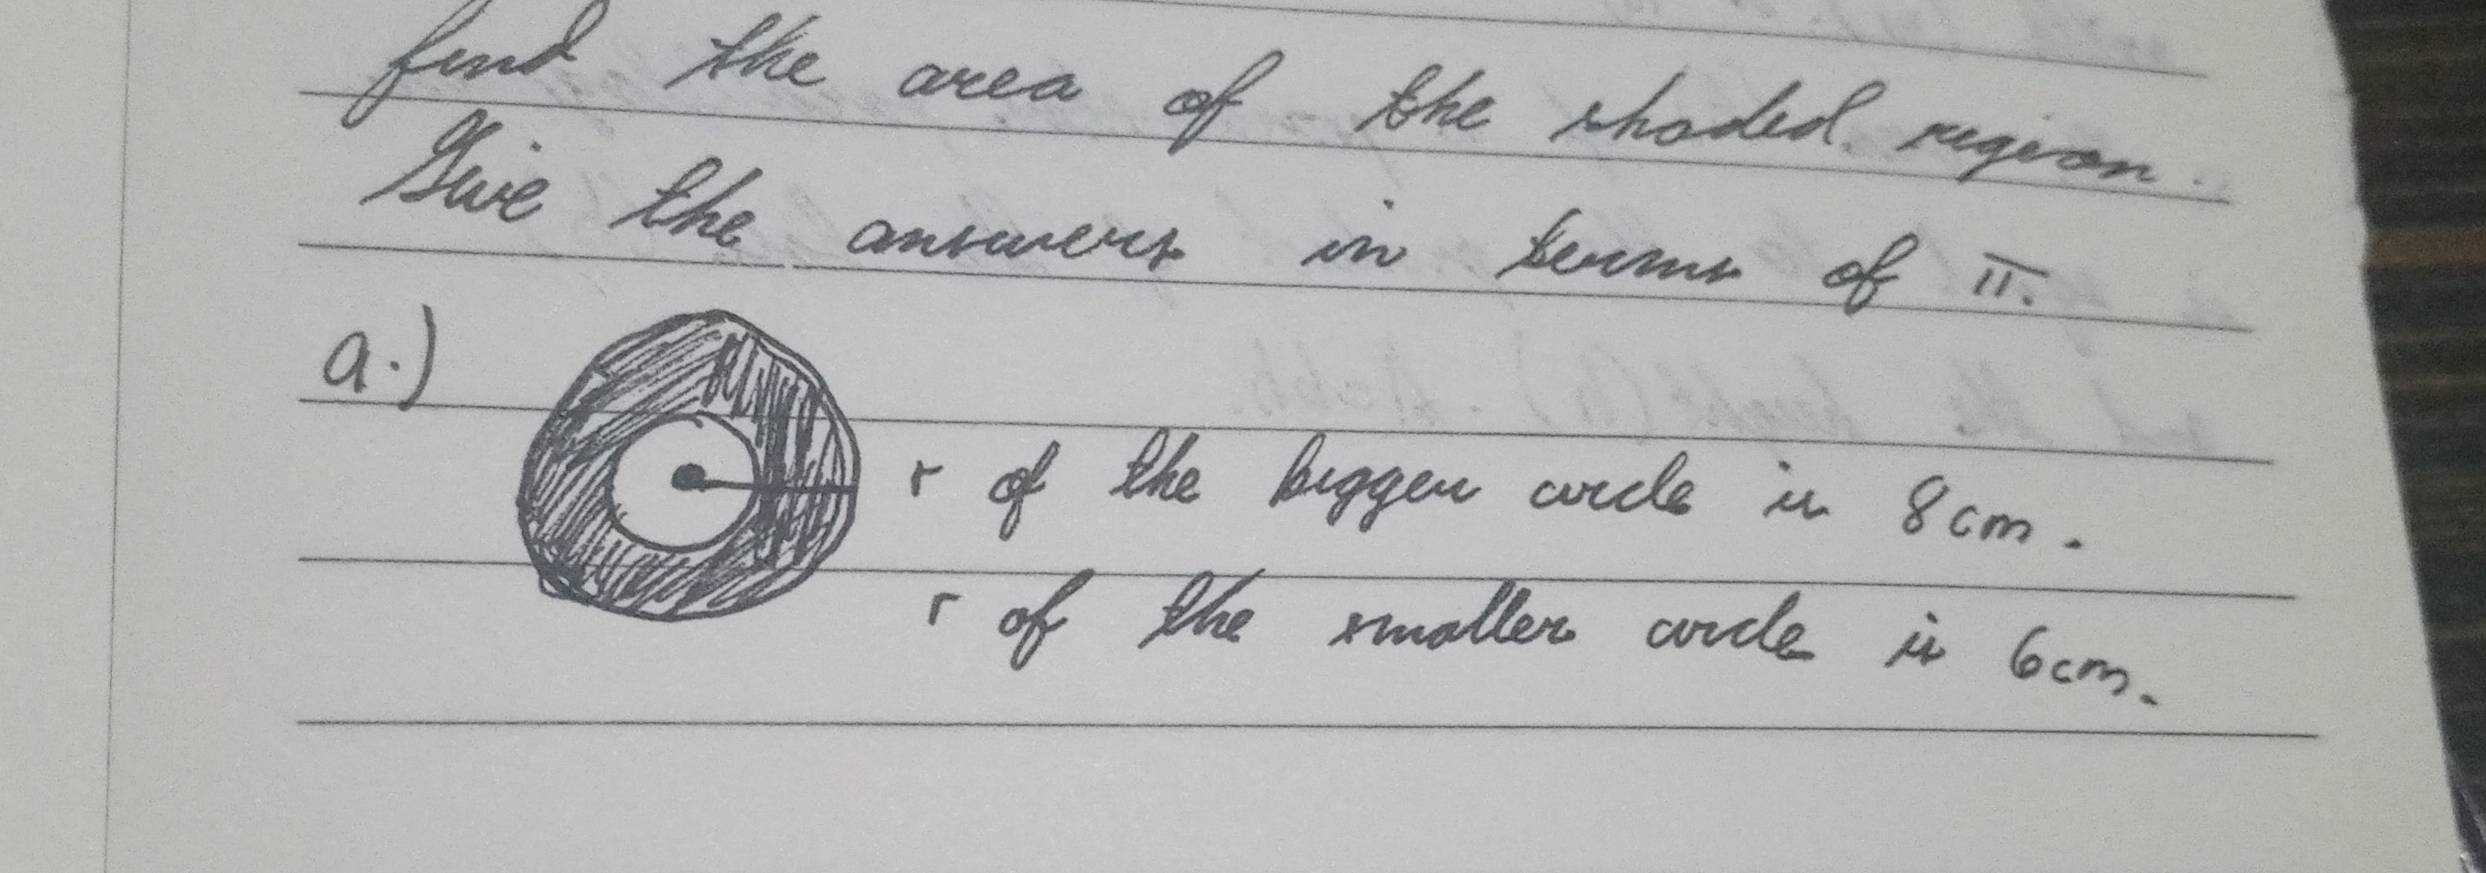 find the area of the shaded region.
Give the answers in terms of π.
a.)
r of the bigger circle is 8cm.
r of the smaller circle is 6cm.